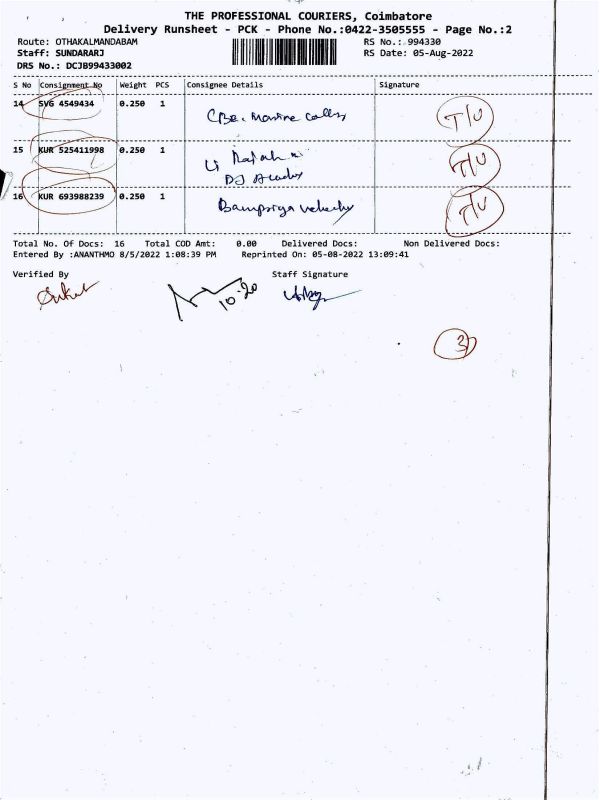 THE PROFESSIONAL COURIERS, Coimbatore
Delivery Runsheet - PCK - Phone No.:0422-3505555 - Page No.:2
Route: OTHAKALMANDABAM RS No.: 994330
Staff: SUNDARARJ RS Date: 05-Aug-2022
DRS No.: DCJB99433002
S No Consignment No Weight PCS Consignee Details Signature
14 SVG 4549434 0.250 1 CBE. Marine T/U
15 KUR 525411998 0.250 1 T/U
DJ
16 KUR 693988239 0.250 1 T/U
Total No. Of Docs: 16 Total COD Amt: 0.00 Delivered Docs: Non Delivered Docs:
Entered By :ANANTHMO 8/5/2022 1:08:39 PM Reprinted On: 05-08-2022 13:09:41
Verified By Staff Signature
10.20
3